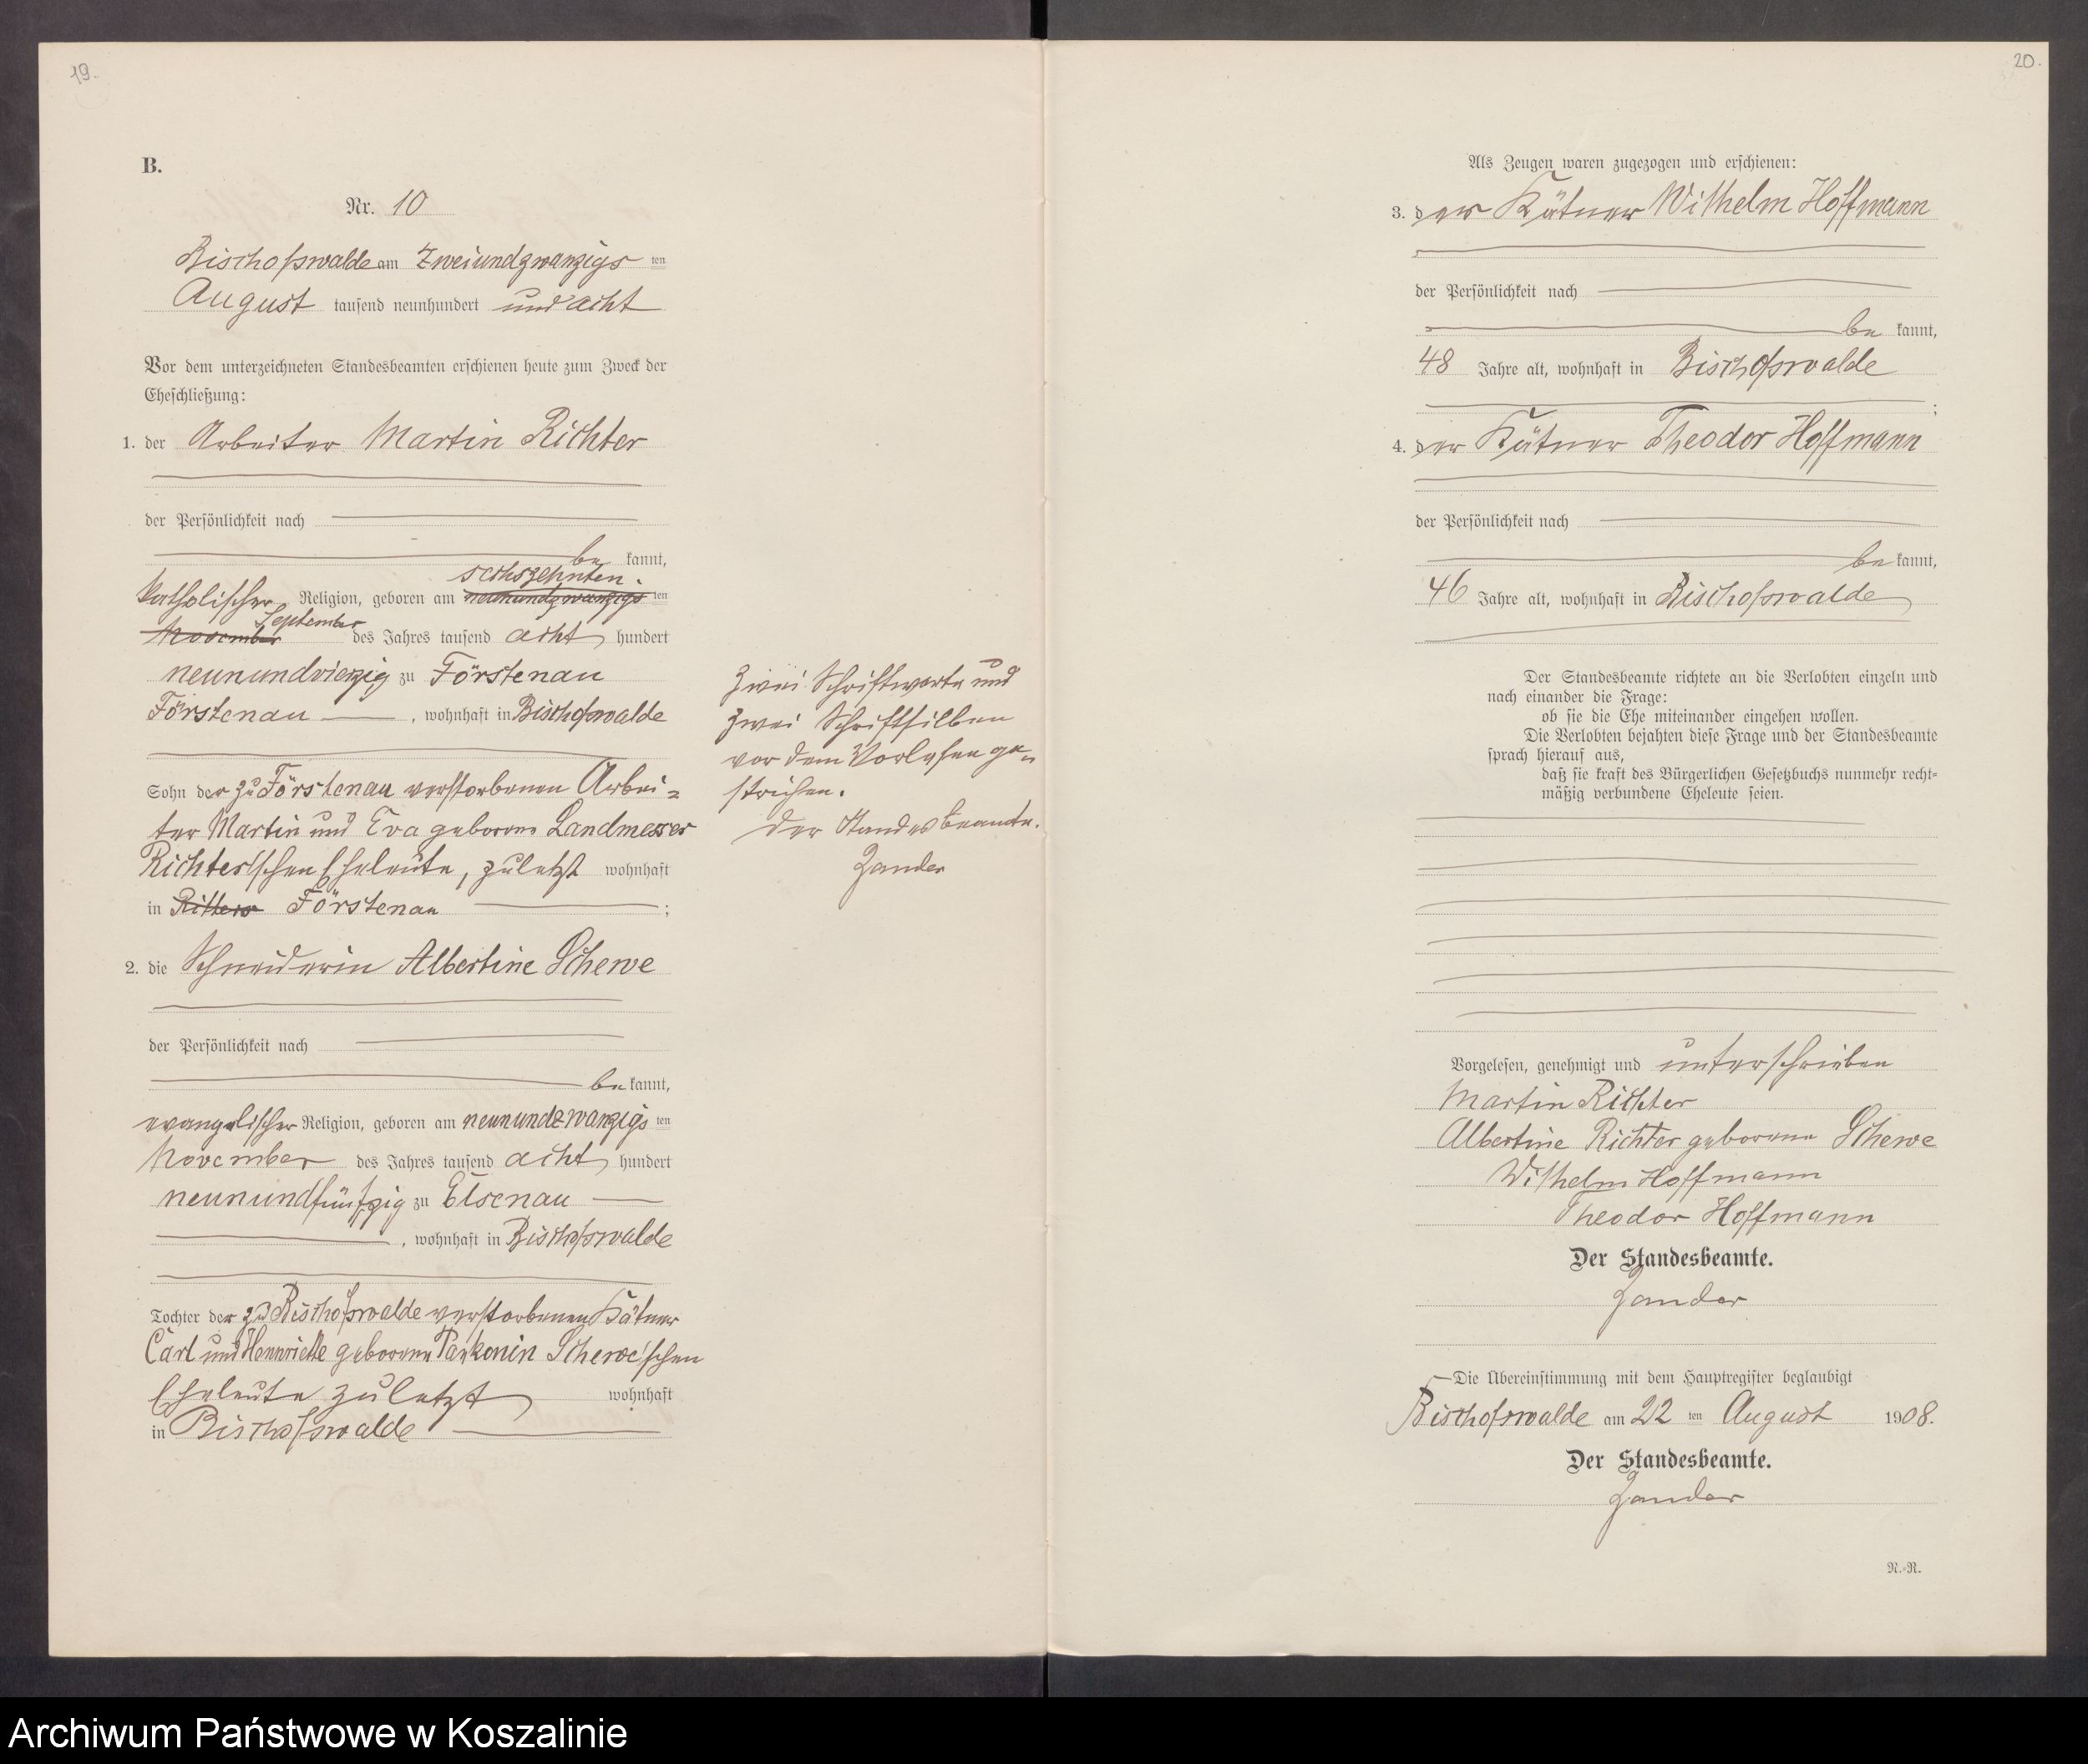 19.
B.
Nr. 10
Bischofswalde am zweiundzwanzigs ten
August tausend neunhundert und acht
Vor dem unterzeichneten Standesbeamten erschienen heute zum Zweck der
Eheschließung:
1. der Arbeiter Martin Richter
der Persönlichkeit nach
be kannt,
sechszehnten
katholischer Religion, geboren am neunundzwanzigs ten
September
November des Jahres tausend acht hundert
neunundvierzig zu Förstenau
Förstenau, wohnhaft in Bischofswalde
Sohn der zu Förstenau verstorbenen Arbei=
ter Martin und Eva geborene Landmesser
Richter'schen Eheleute, zuletzt wohnhaft
in Ritters Förstenau ;
2. die Schneiderin Albertine Schewe
der Persönlichkeit nach
be kannt,
evangelischer Religion, geboren am neunundzwanzigs ten
November des Jahres tausend acht hundert
neunundfünfzig zu Elsenau
, wohnhaft in Bischofswalde
Tochter der zu Bischofswalde verstorbenen Kätner
Carl und Hennriette geborenen Pankonin Schewe'schen
Eheleute zuletzt wohnhaft
in Bischofswalde
Zwei Schriftworte und
zwei Schriftsilben
vor dem Vorlesen ge=
strichen.
Der Standesbeamte.
Zander
20.
Als Zeugen waren zugezogen und erschienen:
3. der Kätner Wilhelm Hoffmann
der Persönlichkeit nach
be kannt,
48 Jahre alt, wohnhaft in Bischofswalde
;
4. der Kätner Theodor Hoffmann
der Persönlichkeit nach
be kannt,
46 Jahre alt, wohnhaft in Bischofswalde
Der Standesbeamte richtete an die Verlobten einzeln und
nach einander die Frage:
ob sie die Ehe miteinander eingehen wollen.
Die Verlobten bejahten diese Frage und der Standesbeamte
sprach hierauf aus,
daß sie kraft des Bürgerlichen Gesetzbuchs nunmehr recht=
mäßig verbundene Eheleute seien.
Vorgelesen, genehmigt und unterschrieben
Martin Richter
Albertine Richter geborene Schewe
Wilhelm Hoffmann
Theodor Hoffmann
Der Standesbeamte.
Zander
Die Übereinstimmung mit dem Hauptregister beglaubigt
Bischofswalde am 22 ten August 1908.
Der Standesbeamte.
Zander
N.=R.
Archiwum Państwowe w Koszalinie